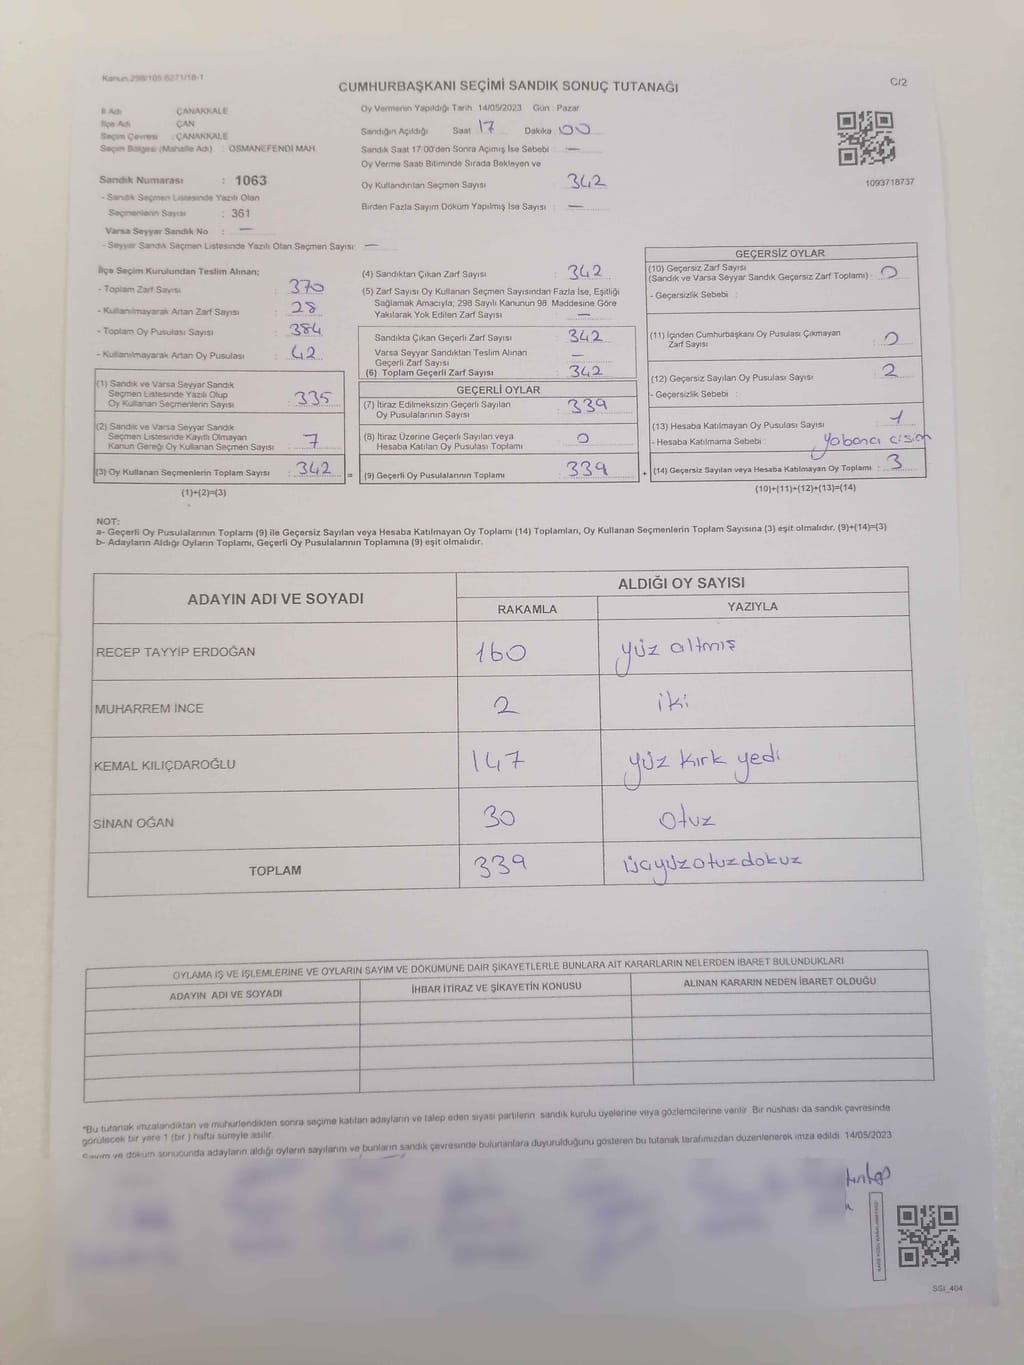 Kanun:298/105 6271/18-1
CUMHURBAŞKANI SEÇİMİ SANDIK SONUÇ TUTANAĞI
C/2
İl Adı : ÇANAKKALE
İlçe Adı : ÇAN
Seçim Çevresi : ÇANAKKALE
Seçim Bölgesi (Mahalle Adı) : OSMANEFENDİ MAH.
Sandık Numarası : 1063
- Sandık Seçmen Listesinde Yazılı Olan
Seçmenlerin Sayısı : 361
Varsa Seyyar Sandık No : —
- Seyyar Sandık Seçmen Listesinde Yazılı Olan Seçmen Sayısı: —
Oy Vermenin Yapıldığı Tarih: 14/05/2023 Gün : Pazar
Sandığın Açıldığı Saat 17 Dakika 00
Sandık Saat 17.00'den Sonra Açımış İse Sebebi : —
Oy Verme Saati Bitiminde Sırada Bekleyen ve
Oy Kullandırılan Seçmen Sayısı : 342
Birden Fazla Sayım Döküm Yapılmış İse Sayısı : —
1093718737
İlçe Seçim Kurulundan Teslim Alınan;
- Toplam Zarf Sayısı : 370
- Kullanılmayarak Artan Zarf Sayısı : 28
- Toplam Oy Pusulası Sayısı : 384
- Kullanılmayarak Artan Oy Pusulası : 42
(1) Sandık ve Varsa Seyyar Sandık
Seçmen Listesinde Yazılı Olup
Oy Kullanan Seçmenlerin Sayısı : 335
(2) Sandık ve Varsa Seyyar Sandık
Seçmen Listesinde Kayıtlı Olmayan
Kanun Gereği Oy Kullanan Seçmen Sayısı : 7
(3) Oy Kullanan Seçmenlerin Toplam Sayısı : 342 =
(1)+(2)=(3)
(4) Sandıktan Çıkan Zarf Sayısı : 342
(5) Zarf Sayısı Oy Kullanan Seçmen Sayısından Fazla İse, Eşitliği
Sağlamak Amacıyla; 298 Sayılı Kanunun 98. Maddesine Göre
Yakılarak Yok Edilen Zarf Sayısı : —
Sandıkta Çıkan Geçerli Zarf Sayısı : 342
Varsa Seyyar Sandıktan Teslim Alınan
Geçerli Zarf Sayısı : —
(6) Toplam Geçerli Zarf Sayısı : 342
GEÇERLİ OYLAR
(7) İtiraz Edilmeksizin Geçerli Sayılan
Oy Pusulalarının Sayısı : 339
(8) İtiraz Üzerine Geçerli Sayılan veya
Hesaba Katılan Oy Pusulası Toplamı : 0
(9) Geçerli Oy Pusulalarının Toplamı : 339 +
GEÇERSİZ OYLAR
(10) Geçersiz Zarf Sayısı
(Sandık ve Varsa Seyyar Sandık Geçersiz Zarf Toplamı) : 0
- Geçersizlik Sebebi :
(11) İçinden Cumhurbaşkanı Oy Pusulası Çıkmayan
Zarf Sayısı : 0
(12) Geçersiz Sayılan Oy Pusulası Sayısı : 2
- Geçersizlik Sebebi :
(13) Hesaba Katılmayan Oy Pusulası Sayısı : 1
- Hesaba Katılmama Sebebi : yabancı cisim
(14) Geçersiz Sayılan veya Hesaba Katılmayan Oy Toplamı : 3
(10)+(11)+(12)+(13)=(14)
NOT:
a- Geçerli Oy Pusulalarının Toplamı (9) ile Geçersiz Sayılan veya Hesaba Katılmayan Oy Toplamı (14) Toplamları, Oy Kullanan Seçmenlerin Toplam Sayısına (3) eşit olmalıdır. (9)+(14)=(3)
b- Adayların Aldığı Oyların Toplamı, Geçerli Oy Pusulalarının Toplamına (9) eşit olmalıdır.
ADAYIN ADI VE SOYADI
ALDIĞI OY SAYISI
RAKAMLA YAZIYLA
RECEP TAYYİP ERDOĞAN 160 yüz altmış
MUHARREM İNCE 2 iki
KEMAL KILIÇDAROĞLU 147 yüz kırk yedi
SİNAN OĞAN 30 otuz
TOPLAM 339 üçyüzotuzdokuz
OYLAMA İŞ VE İŞLEMLERİNE VE OYLARIN SAYIM VE DÖKÜMÜNE DAİR ŞİKAYETLERLE BUNLARA AİT KARARLARIN NELERDEN İBARET BULUNDUKLARI
ADAYIN ADI VE SOYADI İHBAR İTİRAZ VE ŞİKAYETİN KONUSU ALINAN KARARIN NEDEN İBARET OLDUĞU
*Bu tutanak imzalandıktan ve mühürlendikten sonra seçime katılan adayların ve talep eden siyasi partilerin sandık kurulu üyelerine veya gözlemcilerine verilir. Bir nüshası da sandık çevresinde
görülecek bir yere 1 (bir ) hafta süreyle asılır.
Sayım ve döküm sonucunda adayların aldığı oyların sayılarını ve bunların sandık çevresinde bulunanlara duyurulduğunu gösteren bu tutanak tarafımızdan düzenlenerek imza edildi. 14/05/2023
SSI_404